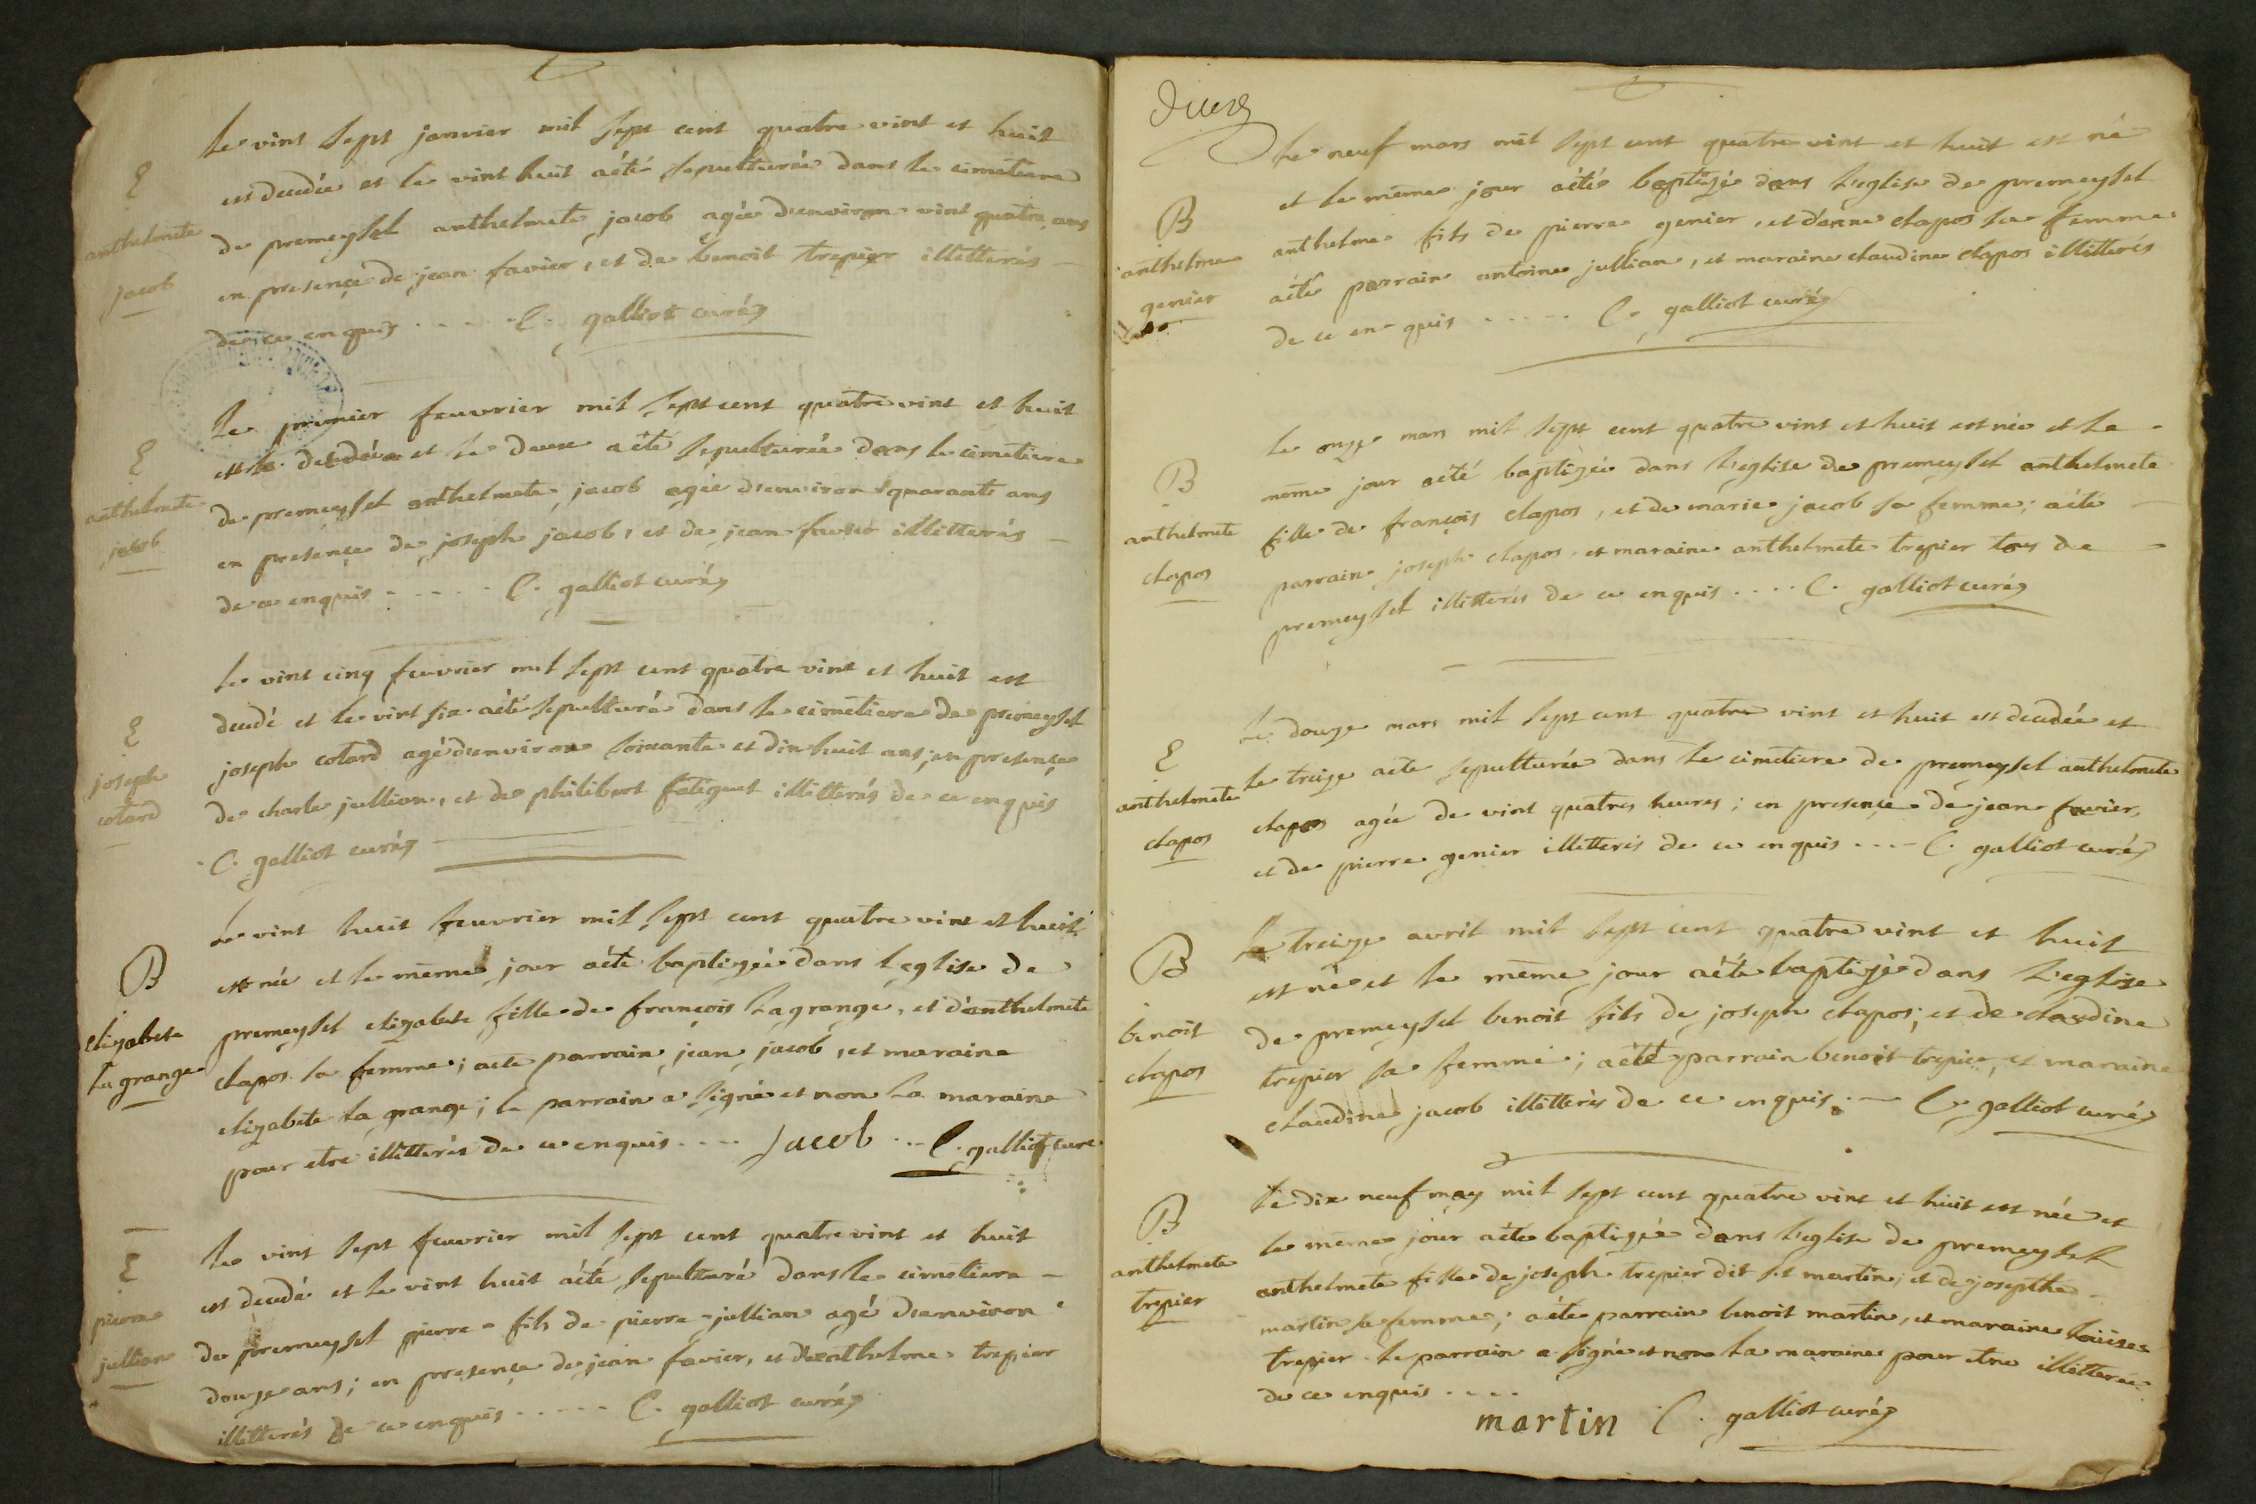 E
anthelmete
jacob
Le vint sept janvier mil sept cent quatre vint et huit
est decedée et le vint huit aété sepulturée dans le cimetiere
de premeysel anthelmete jacob agée d'environ vint quatre ans
en presençe de jean favier, et de benoit trepier illitterés
de ce enquis . . . . . C. galliot curé
E
anthelmete
jacob
Le premier feuvrier mil sept cent quatre vint et huit
est decedée et le deux aété sepulturée dans le cimetiere
de premeysel anthelmete jacob agée d'environ quarante ans
en presençe de joseph jacob, et de jean favier illitterés
de ce enquis . . . . . C. galliot curé
E
joseph
cotard
Le vint cinq feuvrier mil sept cent quatre vint et huit est
decedé et le vint six aété sepulturé dans le cimetiere de premeysel
joseph cotard agé d'environ soixante et dix huit ans; en presençe
de charle jullian, et de philibert fatiguet illitterés de ce enquis
C. galliot curé
B
elizabete
la grange
Le vint huit feuvrier mil sept cent quatre vint et huit
est née et le même jour aété baptizée dans l'eglise de
premeysel elizabete fille de françois Lagrange, et d'anthelmete
clapos sa femme; aété parrain jean jacob, et maraine
elizabete la grange; le parrain a signé et non la maraine
pour etre illitterés de ce enquis . . . . Jacob . . . C. galliot curé
E
pierre
jullian
Le vint sept feuvrier mil sept cent quatre vint et huit
est decedé et le vint huit aété sepulturé dans le cimetiere
de premeysel pierre fils de pierre jullian agé d'environ
douze ans; en presençe de jean favier, et d'anthelme trepier
illitterés de ce enquis . . . . . C. galliot curé
B
anthelme
genier
Le neuf mars mil sept cent quatre vint et huit est né
et le même jour aété baptizé dans l'eglise de premeysel
anthelme fils de pierre genier, et d'anne clapos sa femme
aété parrain antoine jullian, et maraine claudine clapos illitterés
de ce en quis . . . . . C. galliot curé
B
anthelmete
clapos
Le onze mars mil sept cent quatre vint et huit est née et le
même jour aété baptizée dans l'eglise de premeysel anthelmete
fille de françois clapos, et de marie jacob sa femme; aété
parrain joseph clapos et maraine anthelmete trepier tous de
premeysel illitterés de ce enquis . . . . C. galliot curé
E
anthelmete
clapos
Le douze mars mil sept cent quatre vint et huit est decedée et
le treize aété sepulturée dans le cimetiere de premeysel anthelmete
clapos agée de vint quatres heures; en presençe de jean favier,
et de pierre genier illitterés de ce enquis . . . . C. galliot curé
B
benoit
clapos
Le treize avril mil sept cent quatre vint et huit
est né et le même jour aété baptizé dans l'eglise
de premeysel benoit fils de joseph clapos; et de claudine
trepier sa femme; aété parrain benoit trepier, et maraine
claudine jacob illitterés de ce enquis . — C. galliot curé
B
anthelmete
trepier
Le dix neuf may mil sept cent quatre vint et huit est née et
le même jour aété baptizée dans l'eglise de premeysel
anthelmete fille de joseph trepier dit st martin; et de josepthe
martin sa femme; aété parrain benoit martin, et maraine loüise
trepier le parrain a signé et non la maraine pour etre illitterée
de ce enquis . . . .
martin C. galliot curé